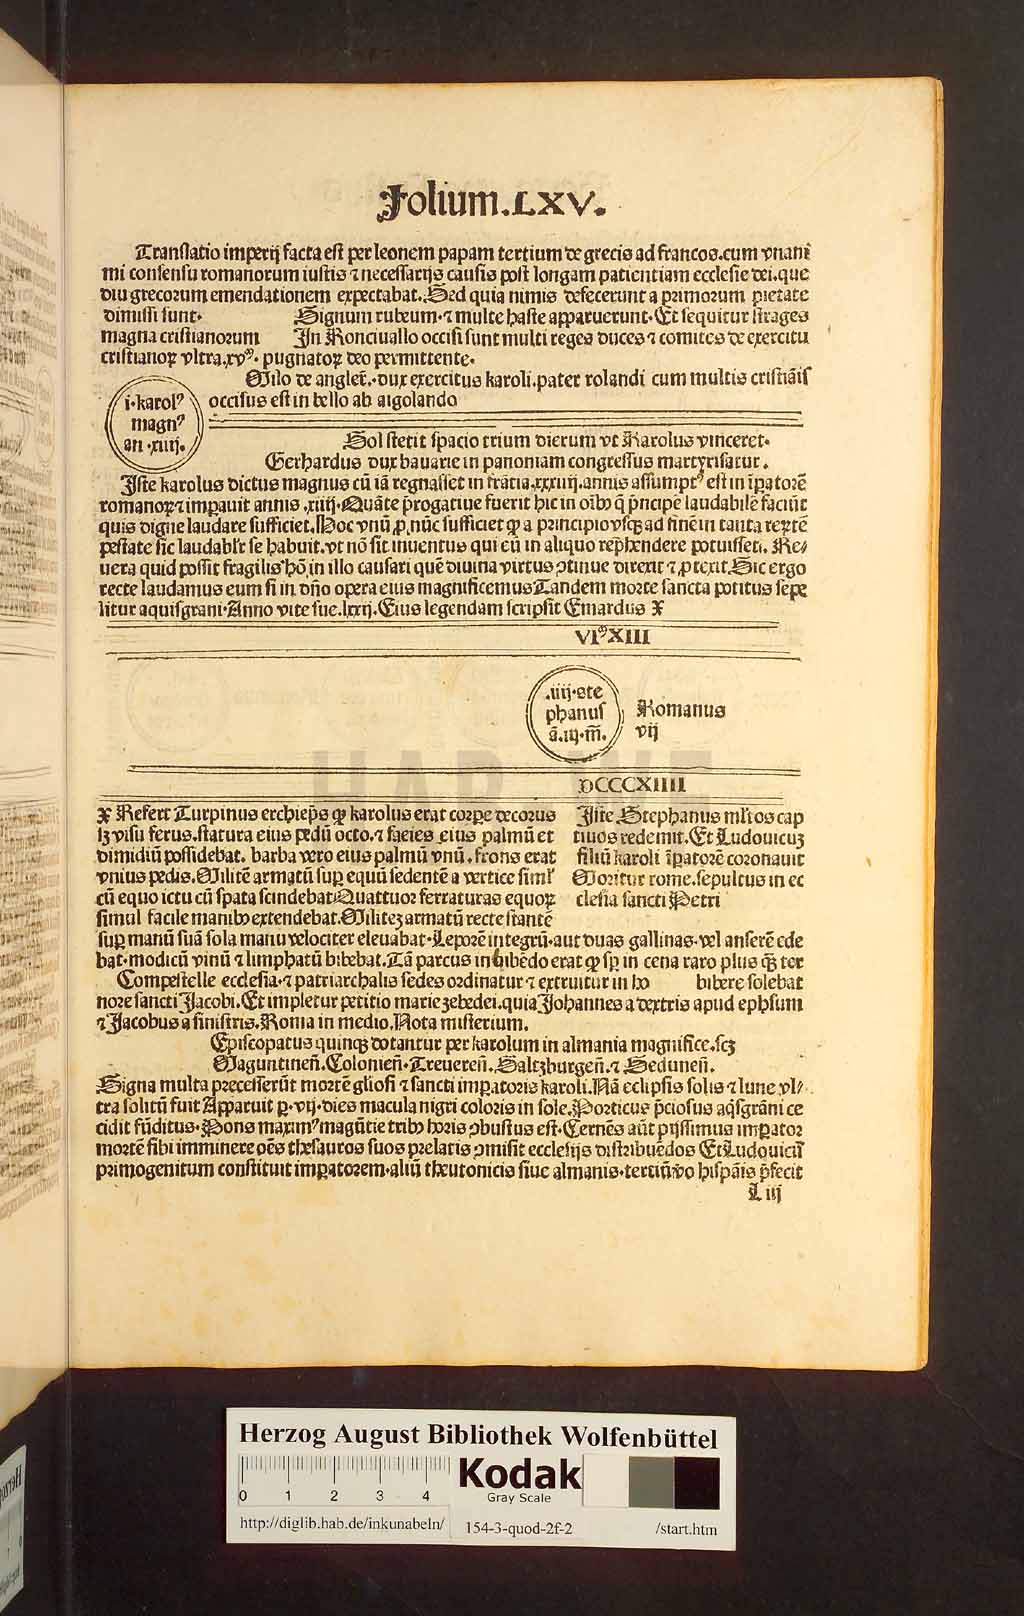 Folium.LXV.
Translatio imperij facta est per leonem papam tertium de grecis ad francos.cum vnani
mi consensu romanorum iustis ⁊ necessarijs causis post longam patientiam ecclesie dei.que
diu grecorum emendationem expectabat. Sed quia nimis defecerunt a primorum pietate
dimissi sunt. Signum rubeum.⁊ multe haste apparuerunt. Et sequitur strages
magna cristianorum In Ronciuallo occisi sunt multi reges duces ⁊ comites de exercitu
cristianoꝝ vltra.xvᵐ. pugnatoꝝ deo permittente.
Milo de angleř. dux exercitus karoli.pater rolandi cum multis cristiāis
occisus est in bello ab aigolando
i.karolꝰ
magnꝰ
an .xiiij.
Sol stetit spacio trium dierum vt Karolus vinceret.
Gerhardus dux bauarie in panoniam congressus martyrisatur.
Iste karolus dictus magnus cū iā regnasset in frācia.xxxiij.annis assumptꝰ est in īpatorē
romanoꝝ ⁊ imꝑauit annis .xiiij. Quāte p̄rogatiue fuerit hic in oībꝰ q̄ p̄ncipē laudabilē faciūt
quis digne laudare sufficiet. Hoc vnū ꝓ nūc sufficiet ꝙ a principio vsqꝫ ad finē in tanta reꝝ tē
pestate sic laudabl'r se habuit.vt nō sit inuentus qui eū in aliquo rep̄hendere potuisset. Re⸗
uera quid possit fragilis hō in illo causari quē diuina virtus ↄtinue direxit ⁊ ꝓtexit. Sic ergo
recte laudamus eum si in dño opera eius magnificemus Tandem morte sancta potitus sepe
litur aquisgrani. Anno vite sue.lxxij. Eius legendam scripsit Emardus X
VIᵐXIII
.iiij.ste
phanus
ā.iij.m̄.
Romanus
vij
DCCCXIIII
X Refert Turpinus erchiep̄s ꝙ karolus erat corꝑe decorus
lꝫ visu ferus.statura eius pedū octo.⁊ facies eius palmū et
dimidiū possidebat. barba vero eius palmū vnū. frons erat
vnius pedis. Militē armatū suꝑ equū sedentē a vertice siml'
cū equo ictu cū spata scindebat Quattuor ferraturas equoꝝ
simul facile manibꝰ extendebat. Militeꝫ armatū recte stantē
Iste Stephanus ml'tos cap
tiuos redemit. Et Ludouicuꝫ
filiū karoli īpatorē coronauit
Moritur rome.sepultus in ec
clesia sancti Petri
suꝑ manū suā sola manu velociter eleuabat. Leporē integrū.aut duas gallinas.vel anserē ede
bat.modicū vinū ⁊ limphatū bibebat. Tā parcus in bibēdo erat ꝙ sꝑ in cena raro plus q̄ꝫ ter
Compestelle ecclesia.⁊ patriarchalis sedes ordinatur ⁊ extruitur in ho bibere solebat
nore sancti Jacobi. Et impletur petitio marie zebedei.quia Johannes a dextris apud ephsum
⁊ Jacobus a sinistris. Roma in medio. Nota misterium.
Episcopatus quinqꝫ dotantur per karolum in almania magnifice.scꝫ
Maguntineñ. Colonieñ. Treuereñ. Saltzburgeñ. ⁊ Seduneñ.
Signa multa precesserūt mortē gl'iosi ⁊ sancti imꝑatoris karoli. Nā eclipsis solis ⁊ lune vl⸗
tra solitū fuit Apparuit ꝑ .vij.dies macula nigri coloris in sole. Porticus p̄ciosus aq̄sgrāni ce
cidit fūditus. Pons maximꝰ magūtie tribꝰ horis ↄbustus est. Cernēs aūt pijssimus imꝑator
mortē sibi imminere oēs thesauros suos prelatis ↄmisit ecclesijs distribuēdos Et Ludouicū
primogenitum constituit imꝑatorem.aliū theutonicis siue almanis.tertiū vo hispāis p̄fecit
L iij
Herzog August Bibliothek Wolfenbüttel
0 1 2 3 4
Kodak
Gray Scale
http://diglib.hab.de/inkunabeln/ 154-3-quod-2f-2 /start.htm